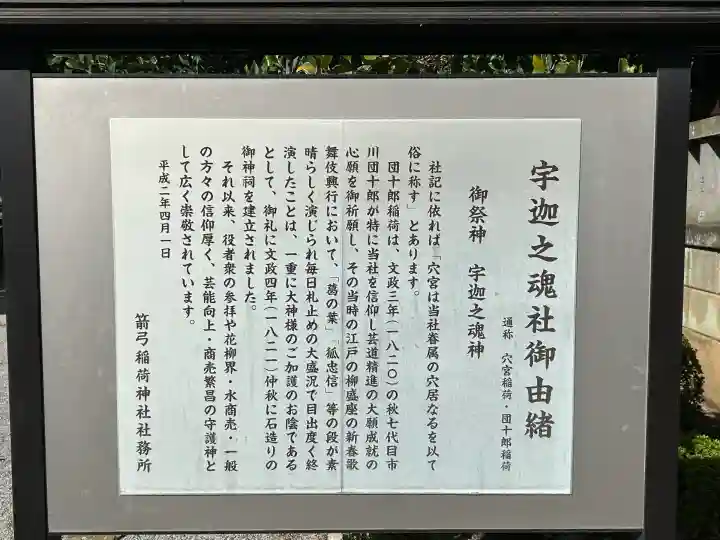 宇迦之魂社御由緒
通称　穴宮稲荷・団十郎稲荷
御祭神　宇迦之魂神
社記に依れば「穴宮は当社眷属の穴居なるを以て
俗に称す」とあります。
団十郎稲荷は、文政三年（一八二〇）の秋七代目市
川団十郎が特に当社を信仰し芸道精進の大願成就の
心願を御祈願し、その当時の江戸の柳盛座の新春歌
舞伎興行において、「葛の葉」「狐忠信」等の段が素
晴らしく演じられ毎日札止めの大盛況で目出度く終
演したことは、一重に大神様のご加護のお陰である
として、御礼に文政四年（一八二一）仲秋に石造りの
御神祠を建立されました。
それ以来、役者衆の参拝や花柳界・水商売・一般
の方々の信仰厚く、芸能向上・商売繁昌の守護神と
して広く崇敬されています。
平成二年四月一日
箭弓稲荷神社社務所